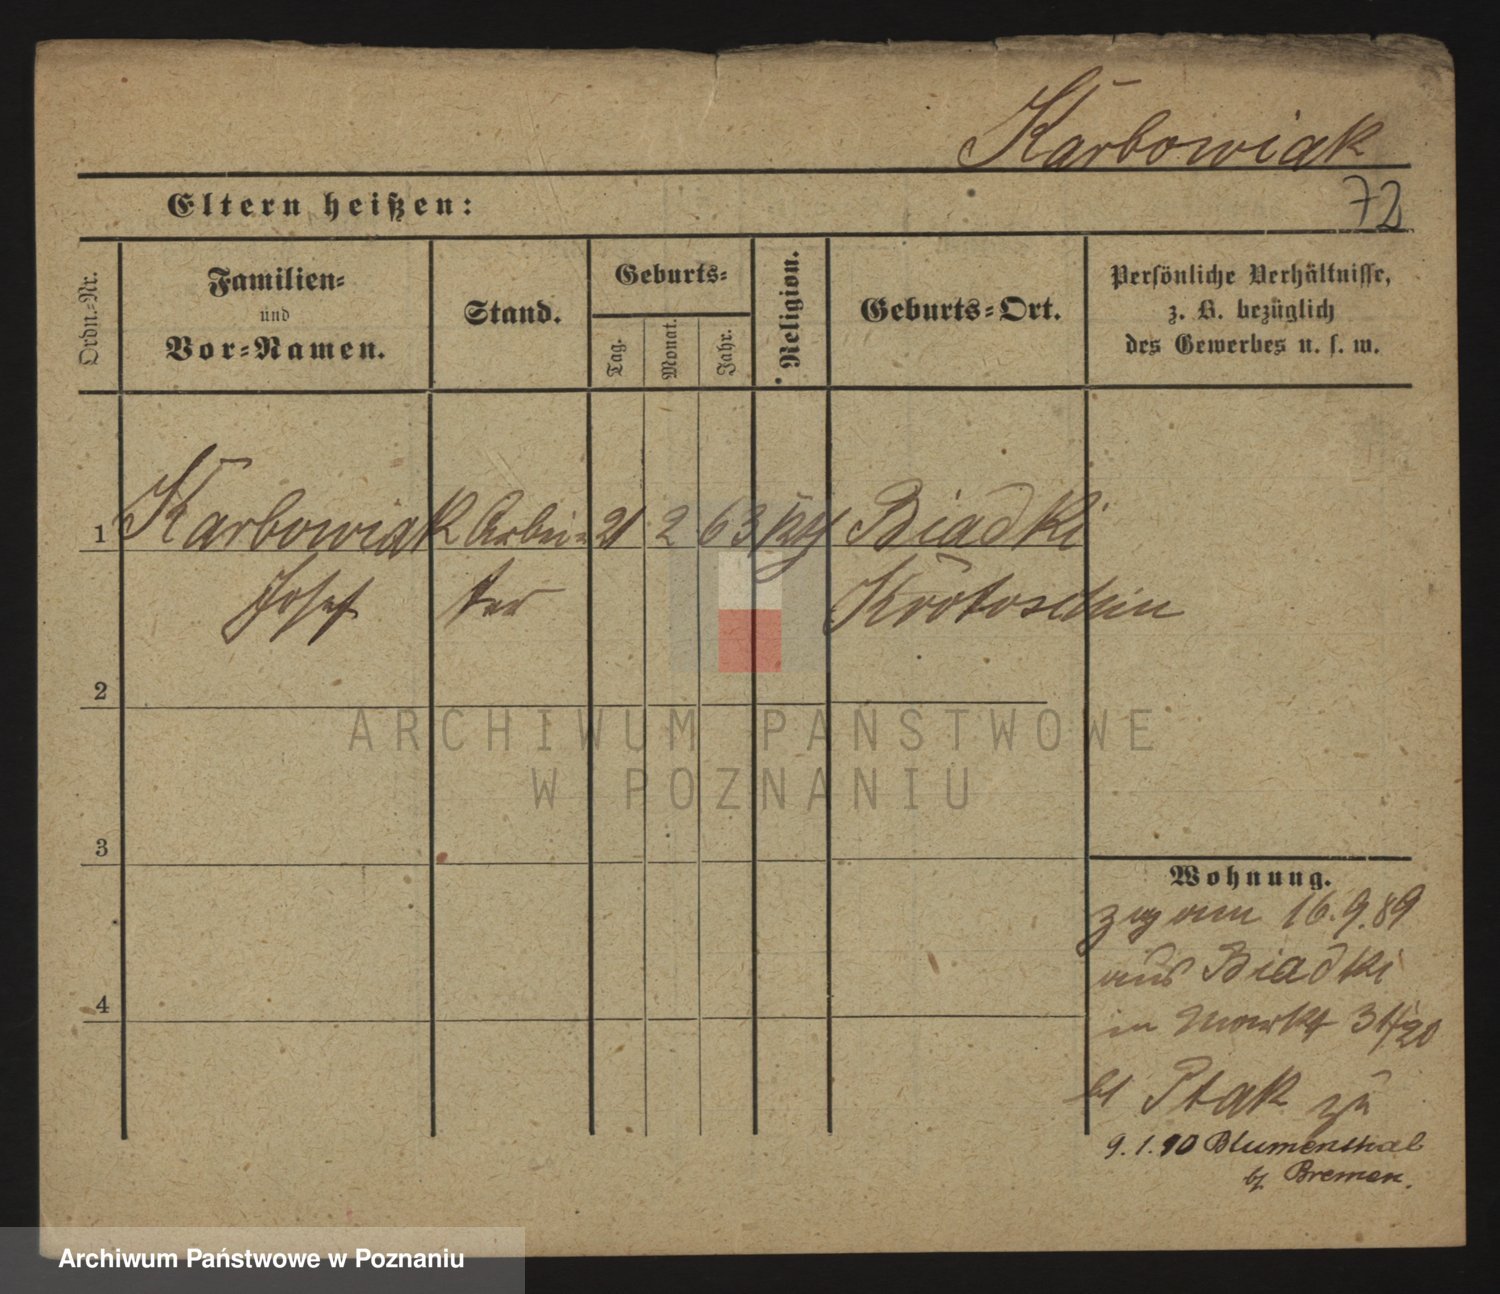 Karbowiak
Eltern heißen:
72
Ordn.-Nr.
Familien-
und
Vor-Namen.
Stand.
Geburts-
Tag.
Monat.
Jahr.
Religion.
Geburts-Ort.
Persönliche Verhältnisse,
z. B. bezüglich
des Gewerbes u. s. w.
1 Karbowiak Arbei- 21 2 63 Biadki
Josef ter Krotoschin
2
3
4
Wohnung.
16. 9. 89
aus Biadki
in Markt 31/20
Ptak zu
9. 1. 90 Blumenthal
b/ Bremen.
ARCHIWUM PAŃSTWOWE
W POZNANIU
Archiwum Państwowe w Poznaniu